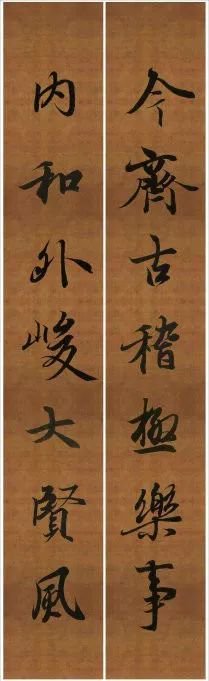 今齋古稽極樂事
內和外峻大賢風